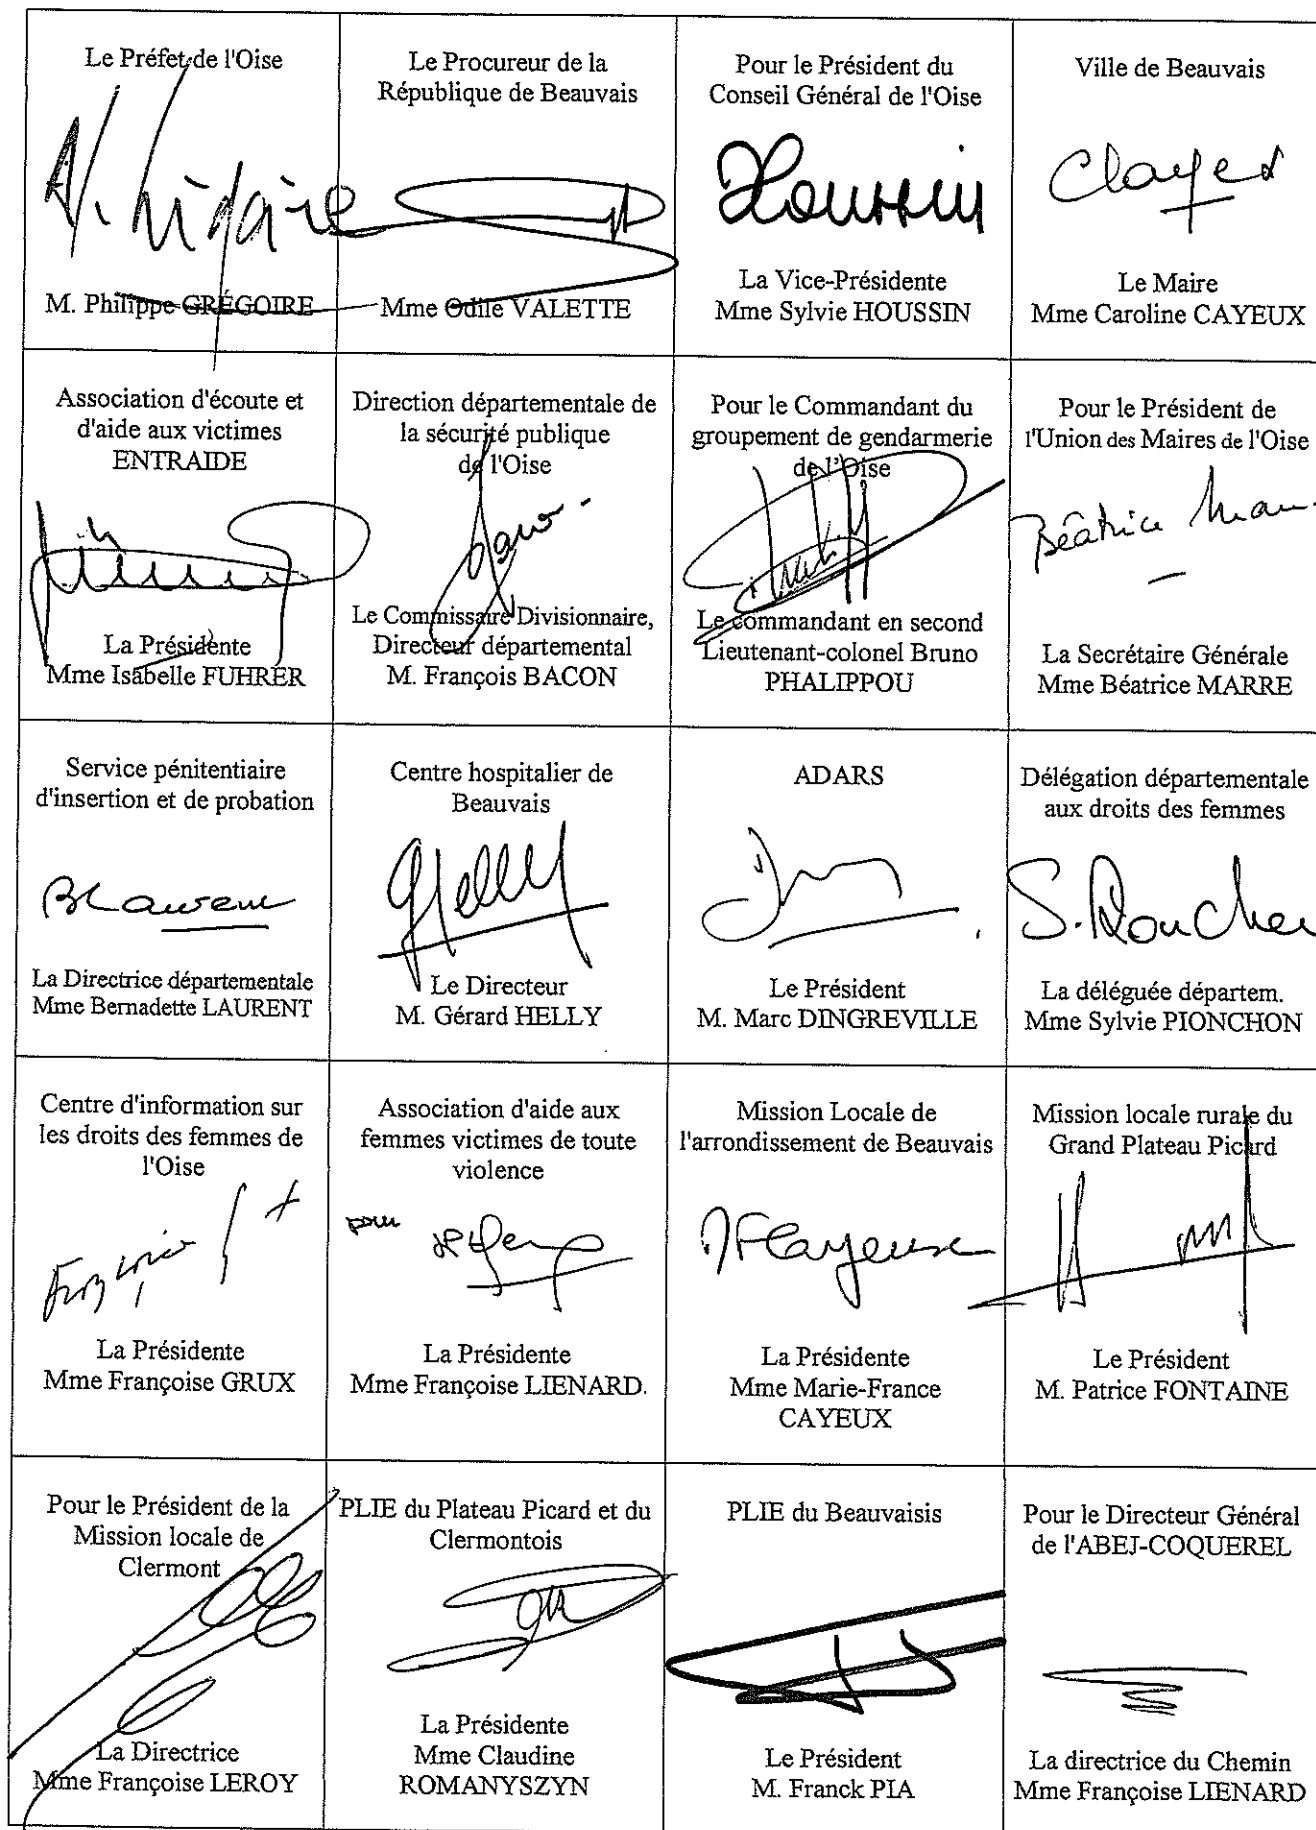 Le Préfet de l'Oise
M. Philippe GRÉGOIRE
Le Procureur de la
République de Beauvais
Mme Odile VALETTE
Pour le Président du
Conseil Général de l'Oise
Houssin
La Vice-Présidente
Mme Sylvie HOUSSIN
Ville de Beauvais
Le Maire
Mme Caroline CAYEUX
Association d'écoute et
d'aide aux victimes
ENTRAIDE
La Présidente
Mme Isabelle FUHRER
Direction départementale de
la sécurité publique
de l'Oise
Le Commissaire Divisionnaire,
Directeur départemental
M. François BACON
Pour le Commandant du
groupement de gendarmerie
de l'Oise
Le commandant en second
Lieutenant-colonel Bruno
PHALIPPOU
Pour le Président de
l'Union des Maires de l'Oise
Béatrice
La Secrétaire Générale
Mme Béatrice MARRE
Service pénitentiaire
d'insertion et de probation
La Directrice départementale
Mme Bernadette LAURENT
Centre hospitalier de
Beauvais
GHelly
Le Directeur
M. Gérard HELLY
ADARS
Le Président
M. Marc DINGREVILLE
Délégation départementale
aux droits des femmes
La déléguée départem.
Mme Sylvie PIONCHON
Centre d'information sur
les droits des femmes de
l'Oise
La Présidente
Mme Françoise GRUX
Association d'aide aux
femmes victimes de toute
violence
pour
La Présidente
Mme Françoise LIENARD.
Mission Locale de
l'arrondissement de Beauvais
MFCayeux
La Présidente
Mme Marie-France
CAYEUX
Mission locale rurale du
Grand Plateau Picard
Le Président
M. Patrice FONTAINE
Pour le Président de la
Mission locale de
Clermont
La Directrice
Mme Françoise LEROY
PLIE du Plateau Picard et du
Clermontois
La Présidente
Mme Claudine
ROMANYSZYN
PLIE du Beauvaisis
Le Président
M. Franck PIA
Pour le Directeur Général
de l'ABEJ-COQUEREL
La directrice du Chemin
Mme Françoise LIENARD